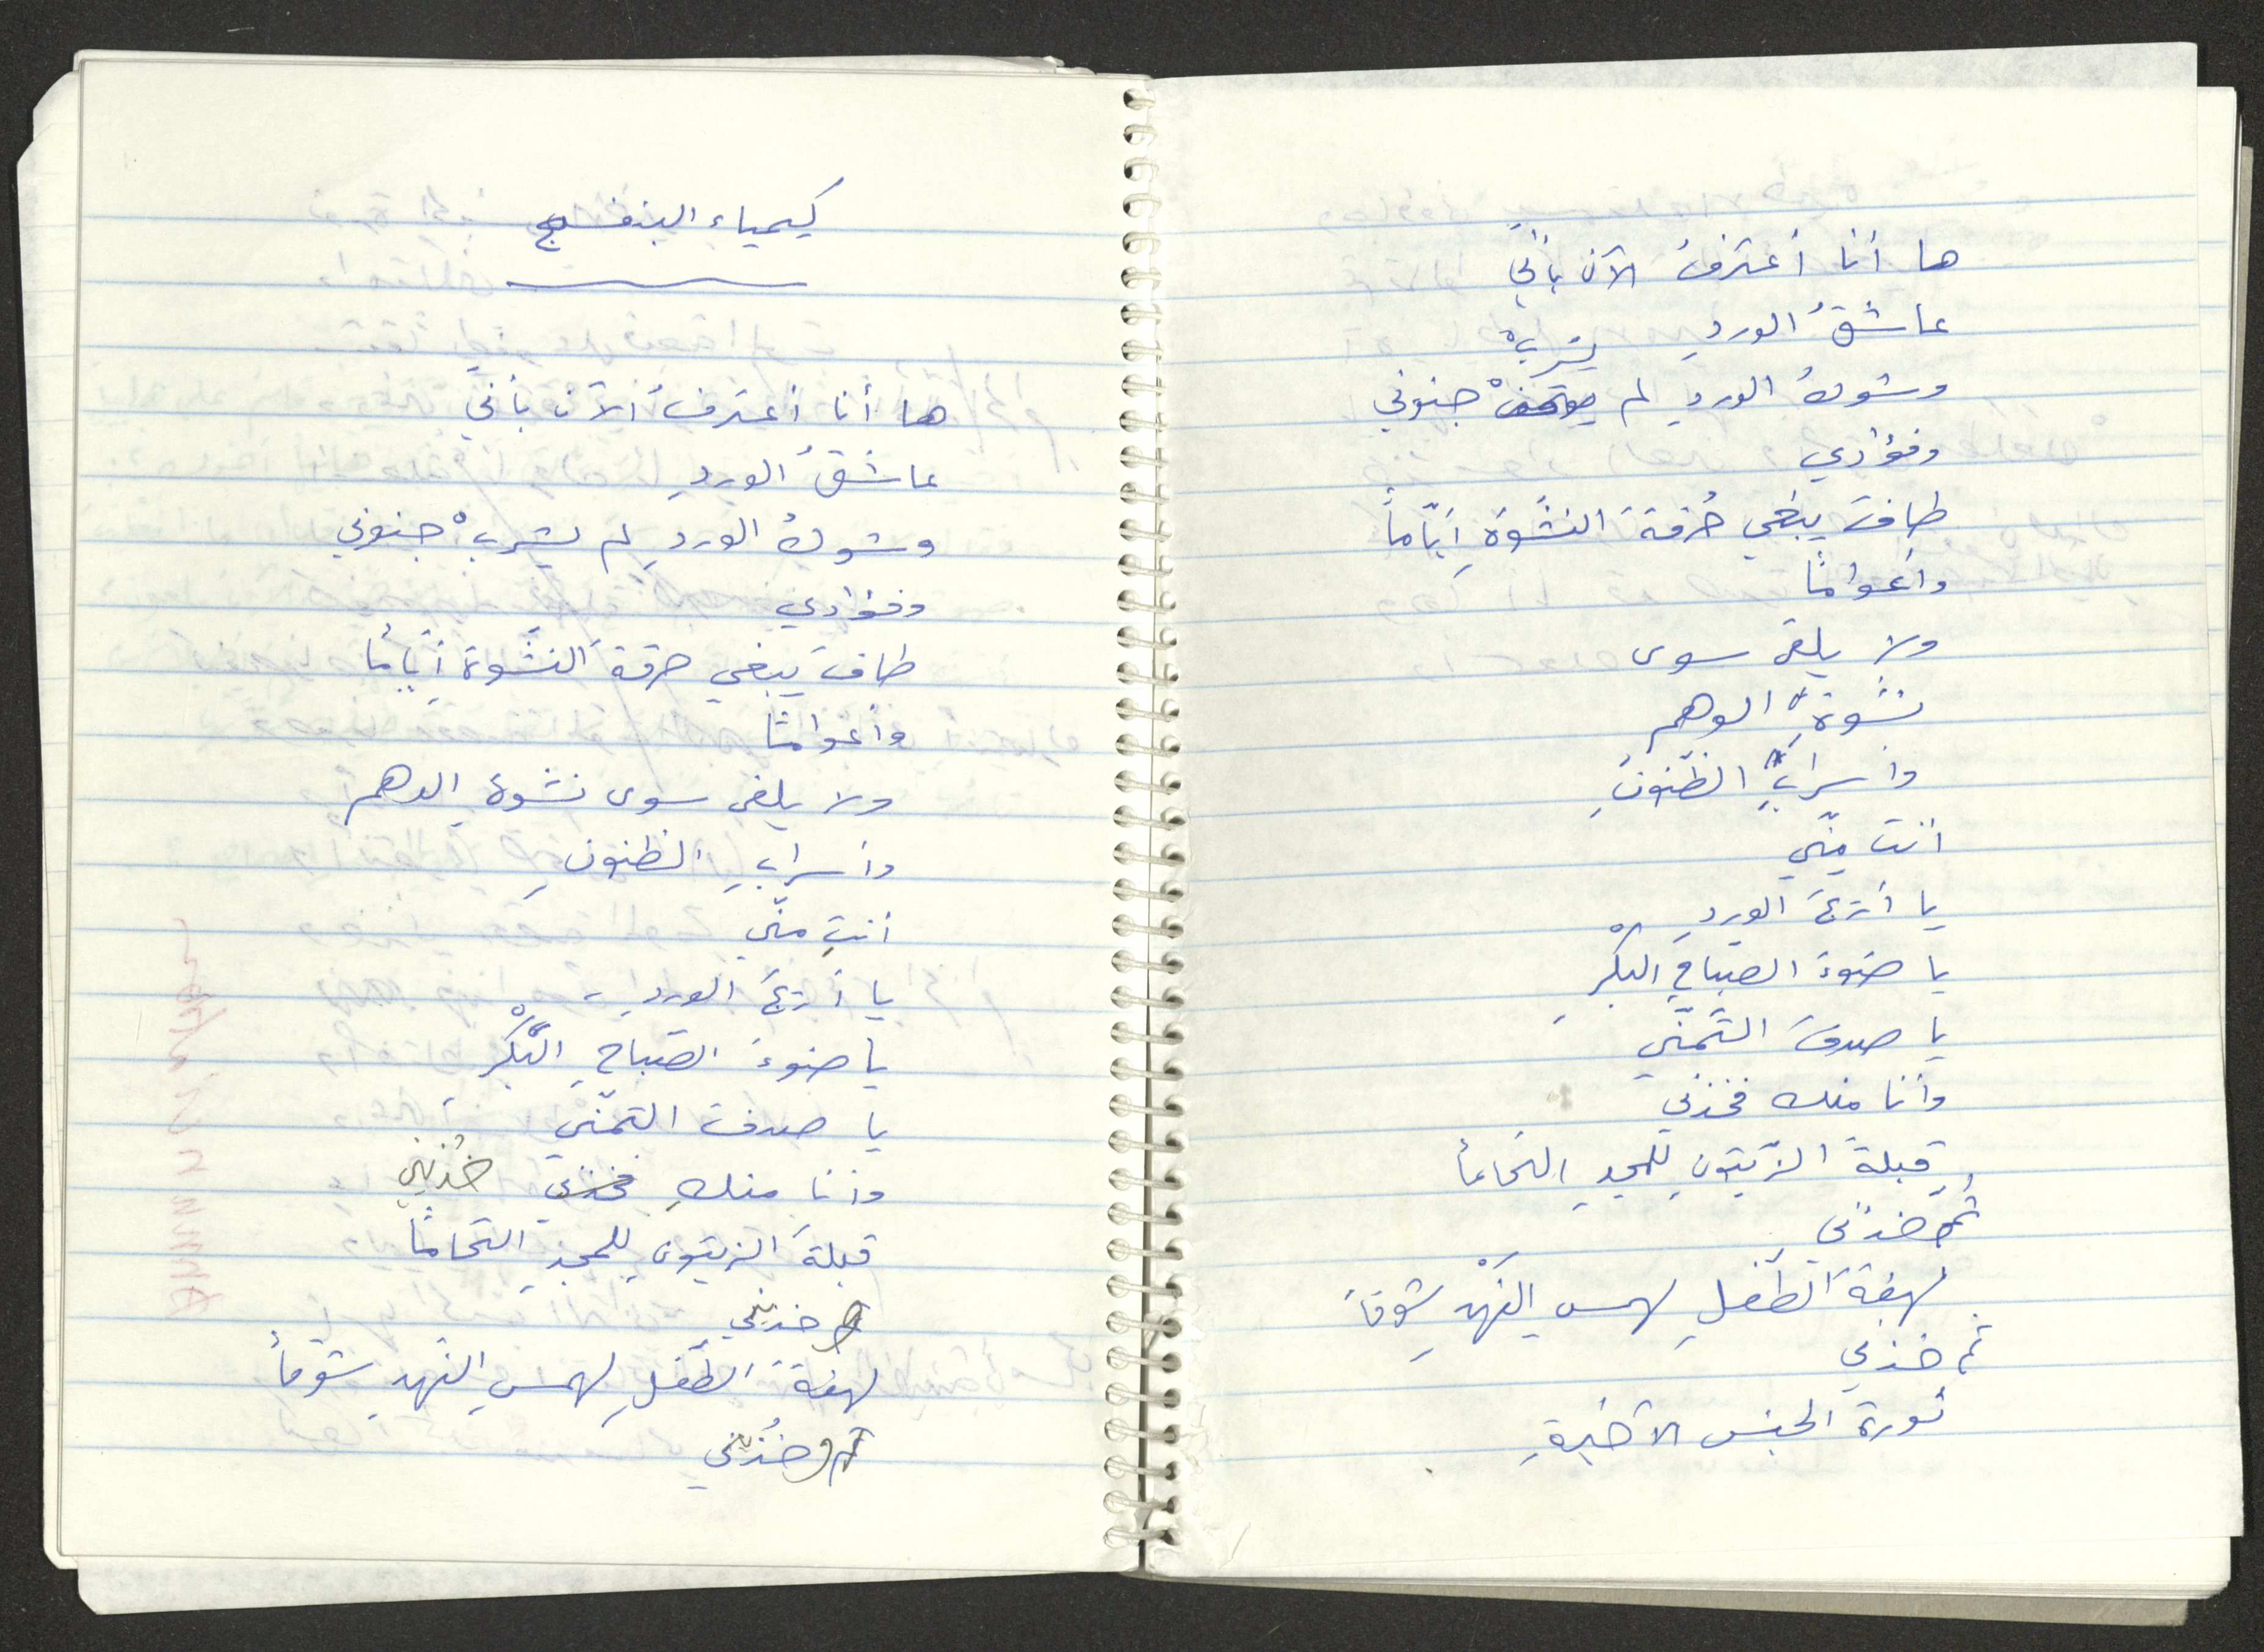 ها أنا أعترفُ الآن بأنّي
عاشقُ الوردِ
يشربْ
وشوكُ الوردِ لم جنوني
وفؤادي
طافَ يبغي حُرقةَ النّشْوَةِ أيّاماً
وأعواماً
ولا يلقى سوى
نشوةِ الوهمِ
وأسرابِ الظّنونِ
أنت منّي
يا أرَجَ الوردِ
يا ضوءَ الصباحِ البكْرِ
يا صدفَ التّمنّي
وأنا منك فخذني
قبلةَ الزّيتونِ للمجدِ التحاماً
ثم خذني
لهفةَ الطّفلِ لهمسِ النّهْدِ شوقاً
ثم خذني
ثورة الجنس الأخيرةِ
كيمياء البنفسج
ها أنا أعترفُ الآن بأنّي
عاشقُ الوردِ
وشوكُ الوردِ لم يشربْ جنوني
وفؤادي
طافَ يبغي حرقةَ النّشْوة أيّاماً
وأعواماً
ولا يلقى سوى نشوةِ الوهم
وأسرابِ الظنونِ
أنتِ منّي
يا أرَجَ الوردِ
يا ضوءَ الصّباحِ البكْرِ
يا صدفَ التمنّي
وأنا منكِ فخذني خُذيني
قبلةَ الزيتونِ للمجدِ التحاماً
خذيني
لهفةَ الطّفلِ لهمسِ النّهدِ شوقاً
ثم خُذيني